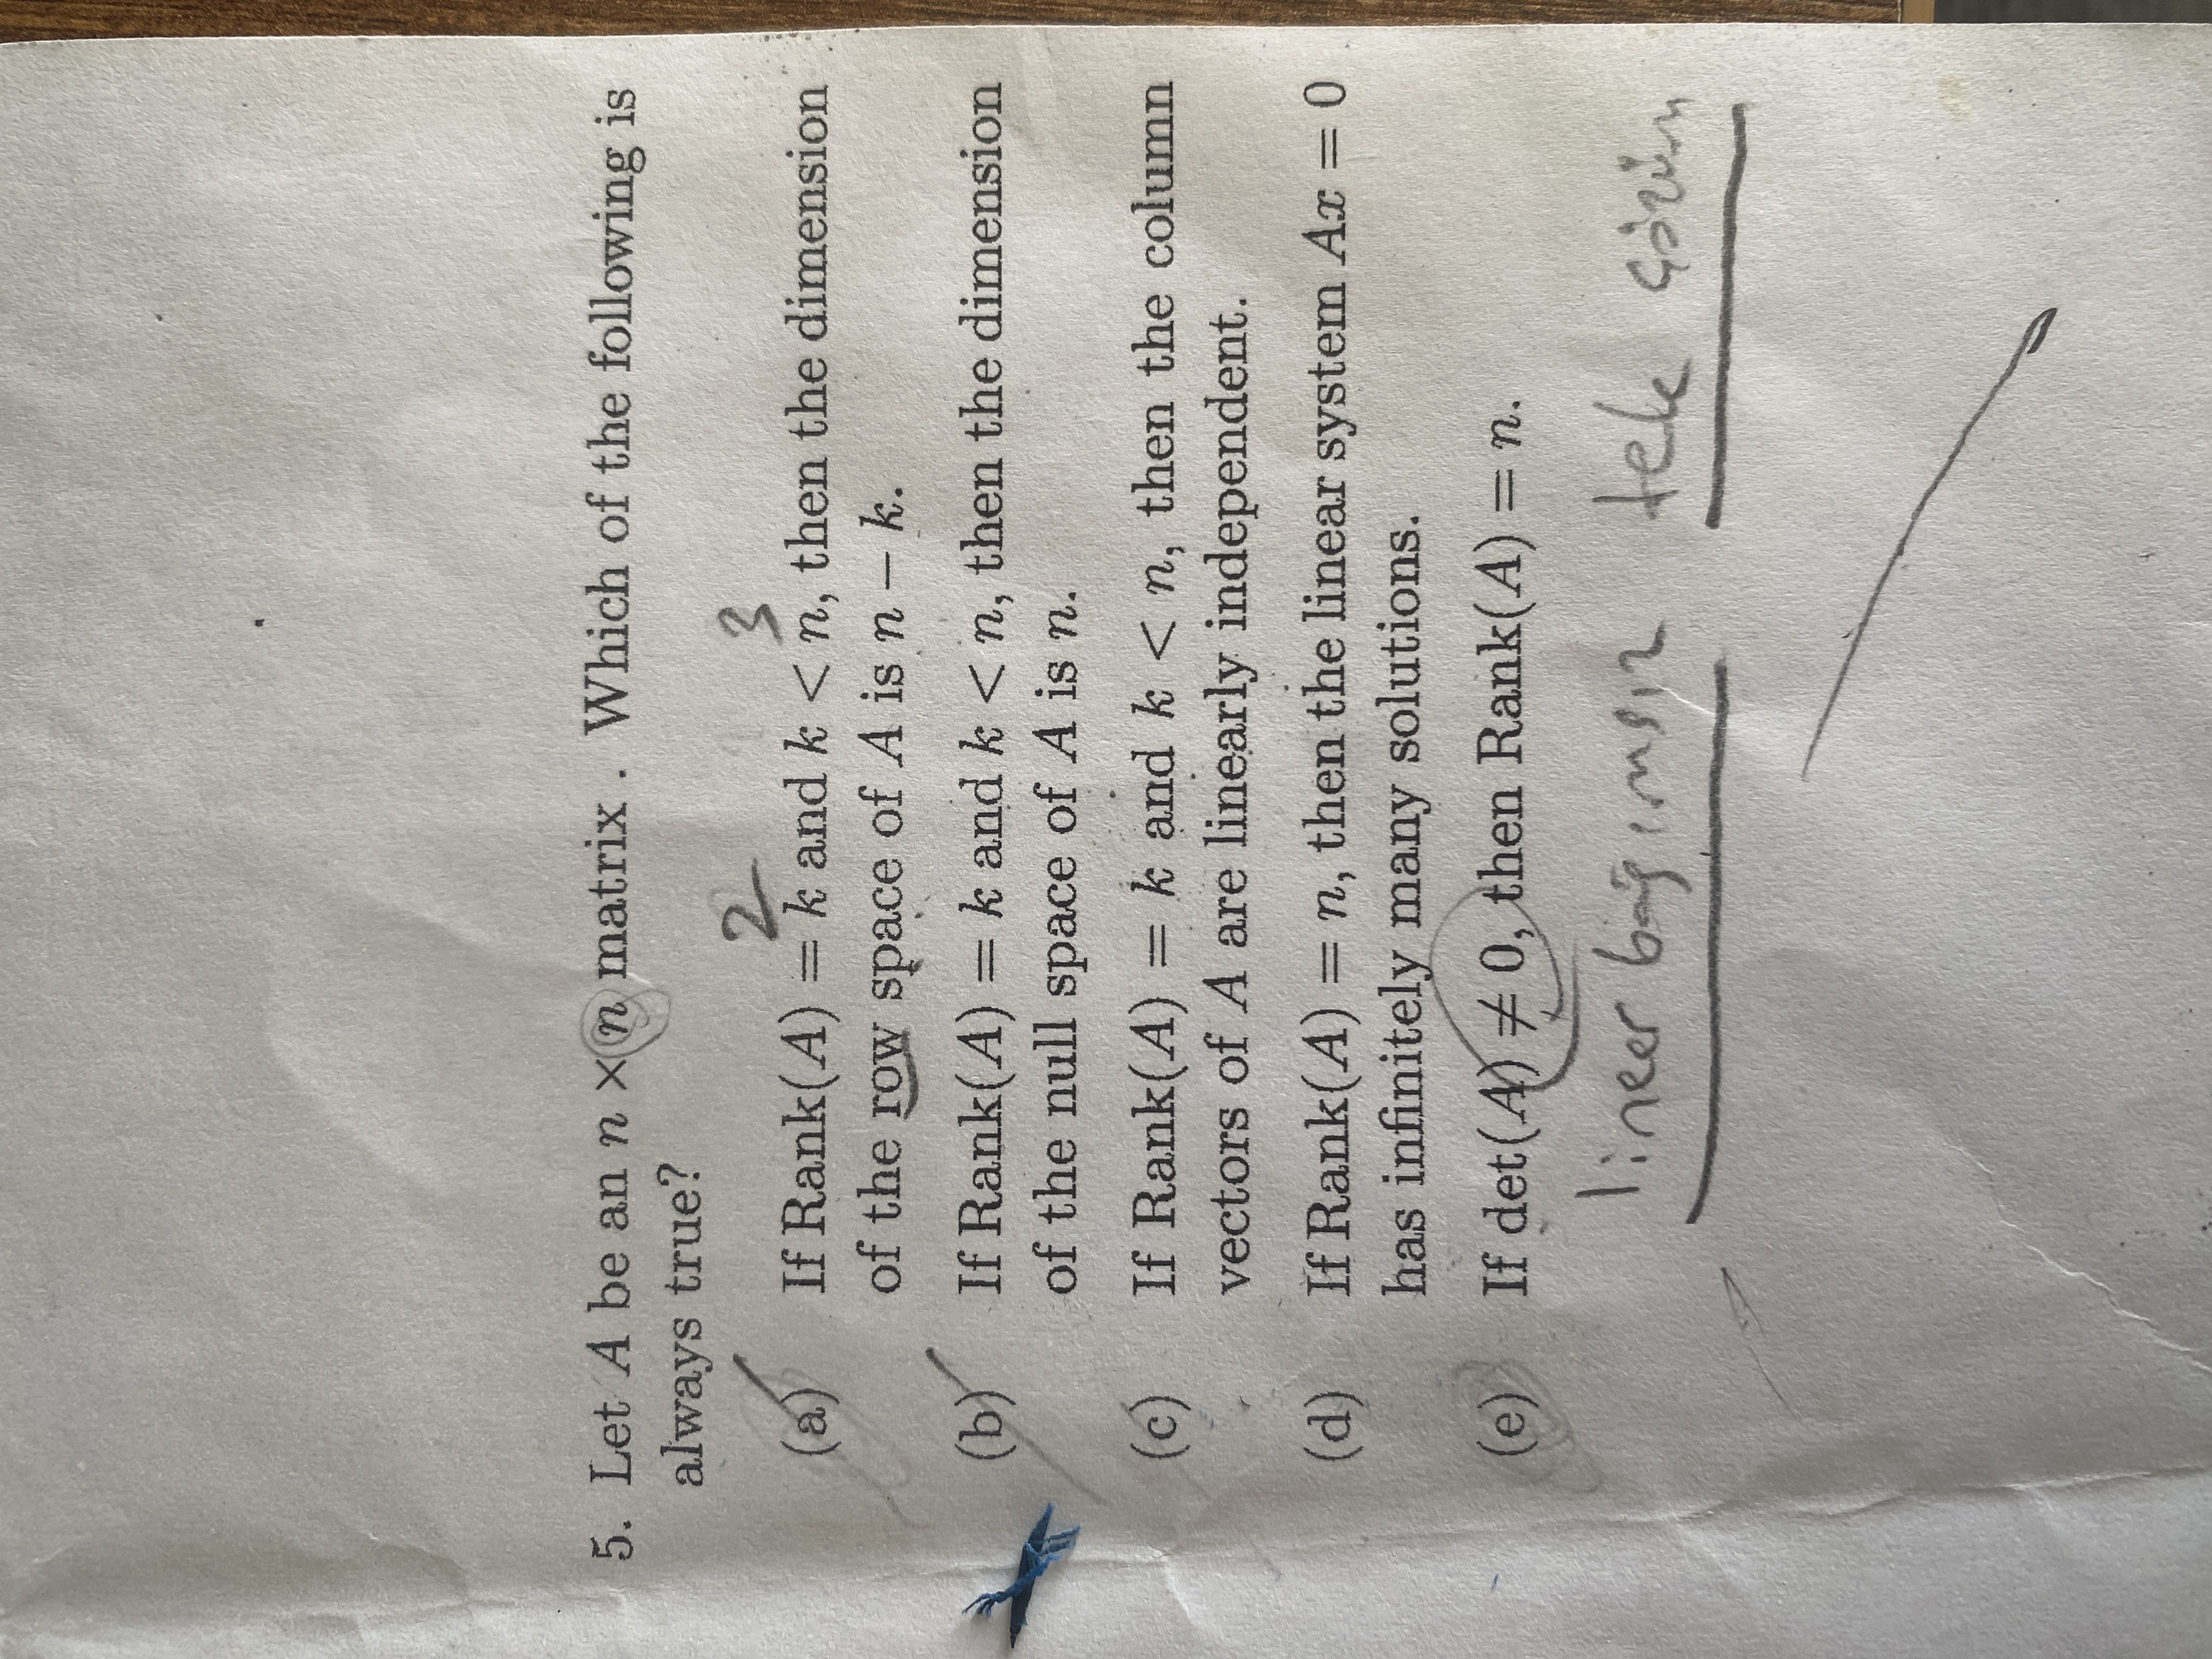 5. Let A be an n × n matrix . Which of the following is
always true?
2 3
(a) If Rank(A) = k and k < n, then the dimension
of the row space of A is n − k.
(b) If Rank(A) = k and k < n, then the dimension
of the null space of A is n.
(c) If Rank(A) = k and k < n, then the column
vectors of A are linearly independent.
(d) If Rank(A) = n, then the linear system Ax = 0
has infinitely many solutions.
(e) If det(A) ≠ 0, then Rank(A) = n.
lineer bağımsız tek çözüm